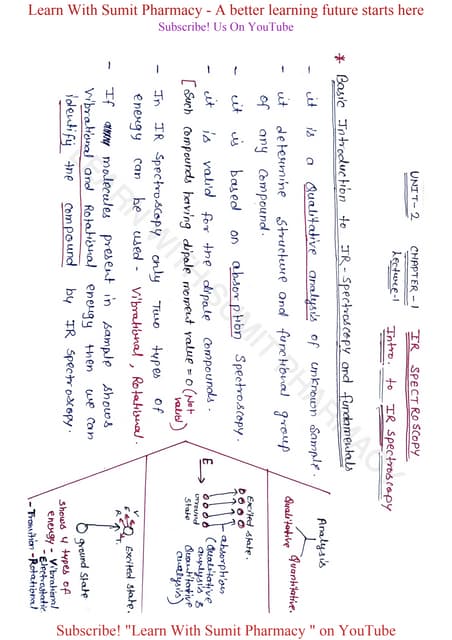 Learn With Sumit Pharmacy - A better learning future starts here
Subscribe! Us On YouTube
UNIT-2 CHAPTER-1 IR SPECTROSCOPY
Lecture-1 Intro. to IR Spectroscopy
* Basic Introduction to IR-Spectroscopy and fundamentals
- it is a Qualitative analysis of unknown sample.
- it determine structure and functional group
of any compound.
- it is based on absorption Spectroscopy.
- it is valid for the dipole compounds.
[Such compounds having dipole moment value = 0 (Not
valid)
- In IR Spectroscopy only Two types of
energy can be used - Vibrational, Rotational.
- If molecules present in sample shows
Vibrational and Rotational energy then we can
identify the compound by IR Spectroscopy.
Analysis
Qualitative Quantitative.
Excited state.
E
absorption
(Qualitative
analysis &
Quantitative
analysis)
Ground
state
Excited state.
V
E
R
T.
ground state
shows 4 types of
energy - Vibrational
- Electrostatic
- Transition - Rotational
LEARN WITH SUMIT PHARMACY
Subscribe! "Learn With Sumit Pharmacy " on YouTube